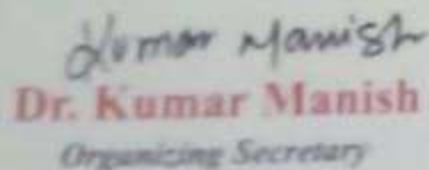 Kumar Manish
Dr. Kumar Manish
Organizing Secretary